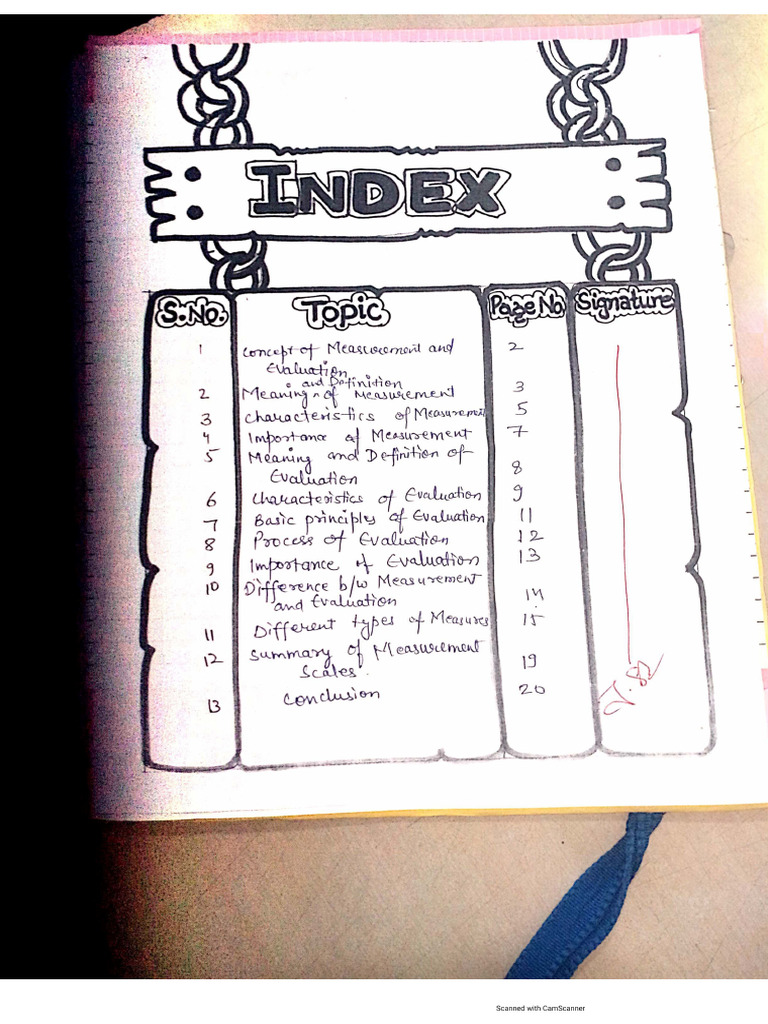 INDEX
S.No. Topic Page No Signature
1 Concept of Measurement and 2
Evaluation
and Definition
2 Meaning of Measurement 3
3 Characteristics of Measurement 5
4 Importance of Measurement 7
5 Meaning and Definition of
Evaluation 8
6 Characteristics of Evaluation 9
7 Basic principles of Evaluation 11
8 Process of Evaluation 12
9 Importance of Evaluation 13
10 Difference b/w Measurement
and Evaluation 14
11 Different types of Measures 15
12 Summary of Measurement
Scales. 19
13 Conclusion 20
Scanned with CamScanner